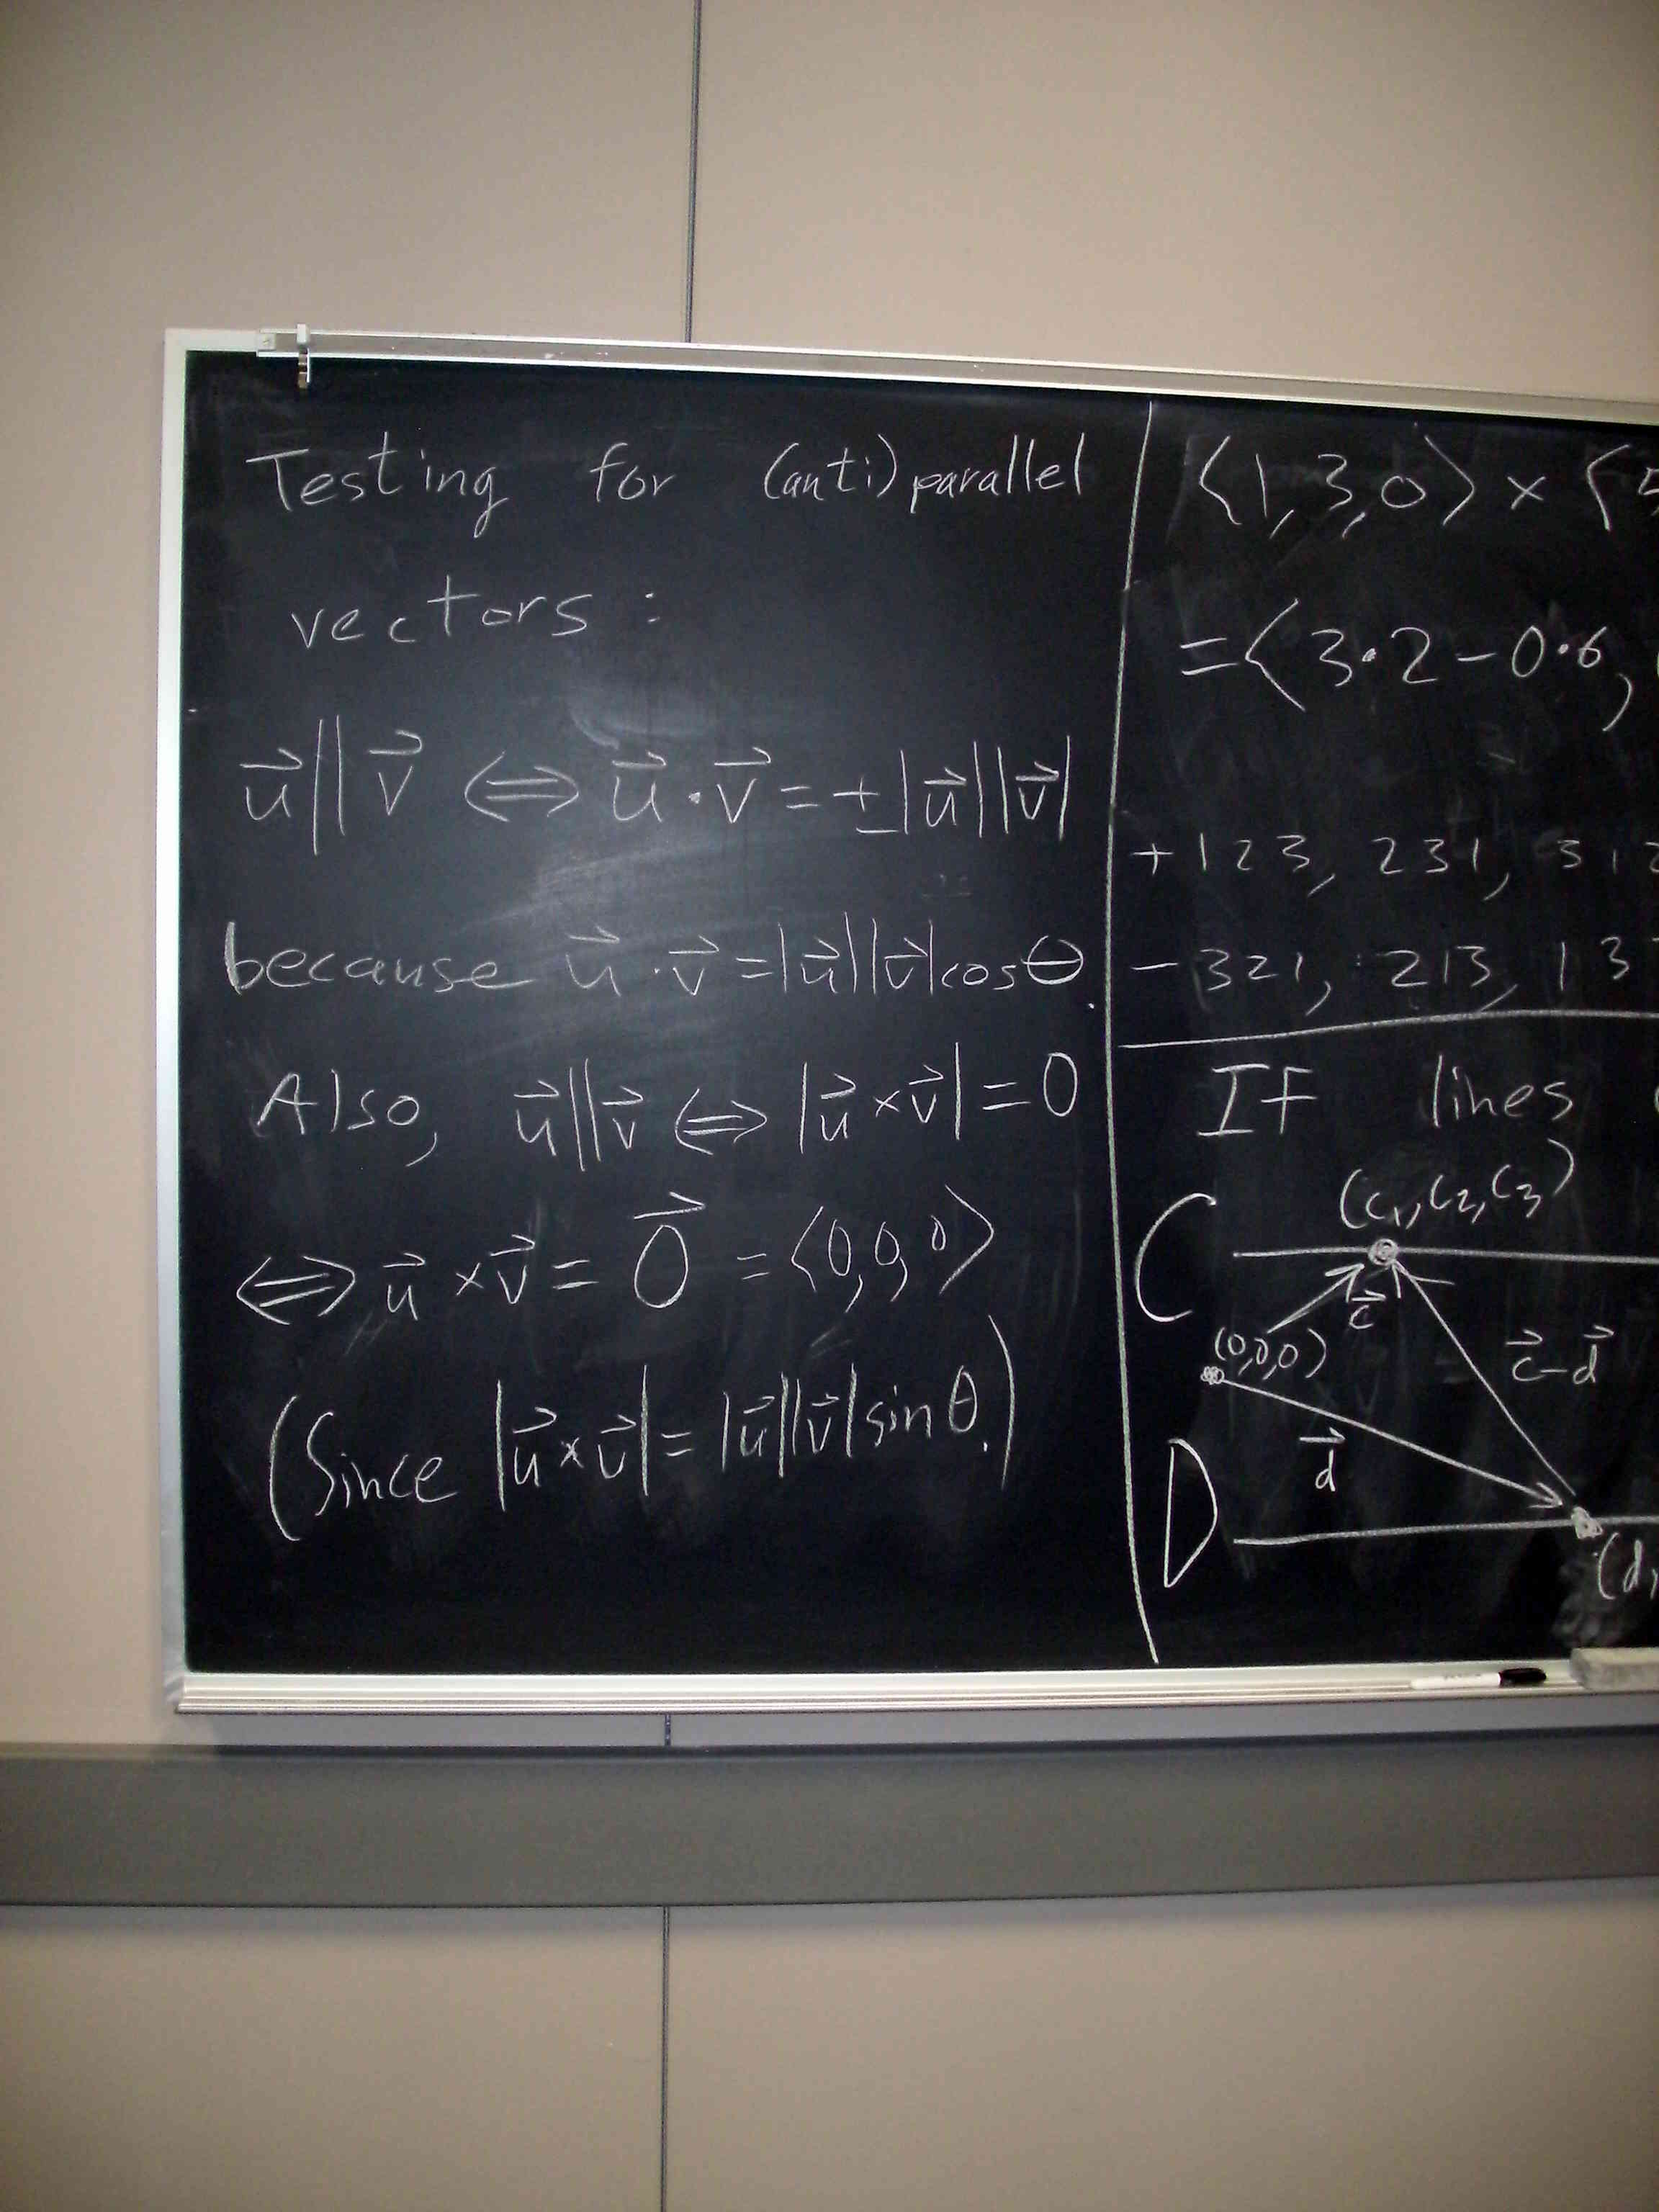 Testing for (anti)parallel
vectors:
u⃗ || v⃗ ⟺ u⃗ · v⃗ = ±|u⃗||v⃗|
because u⃗ · v⃗ = |u⃗||v⃗|cosθ.
Also, u⃗ || v⃗ ⟺ |u⃗ × v⃗| = 0
⟺ u⃗ × v⃗ = 0⃗ = ⟨0,0,0⟩
(Since |u⃗ × v⃗| = |u⃗||v⃗|sinθ.)
⟨1,3,0⟩ × ⟨5,
= ⟨3·2-0·6,
+ 123, 231, 312
- 321, 213, 13
If lines
(c₁,c₂,c₃)
C
c⃗
(0,0,0)
c⃗-d⃗
d⃗
D
(d,